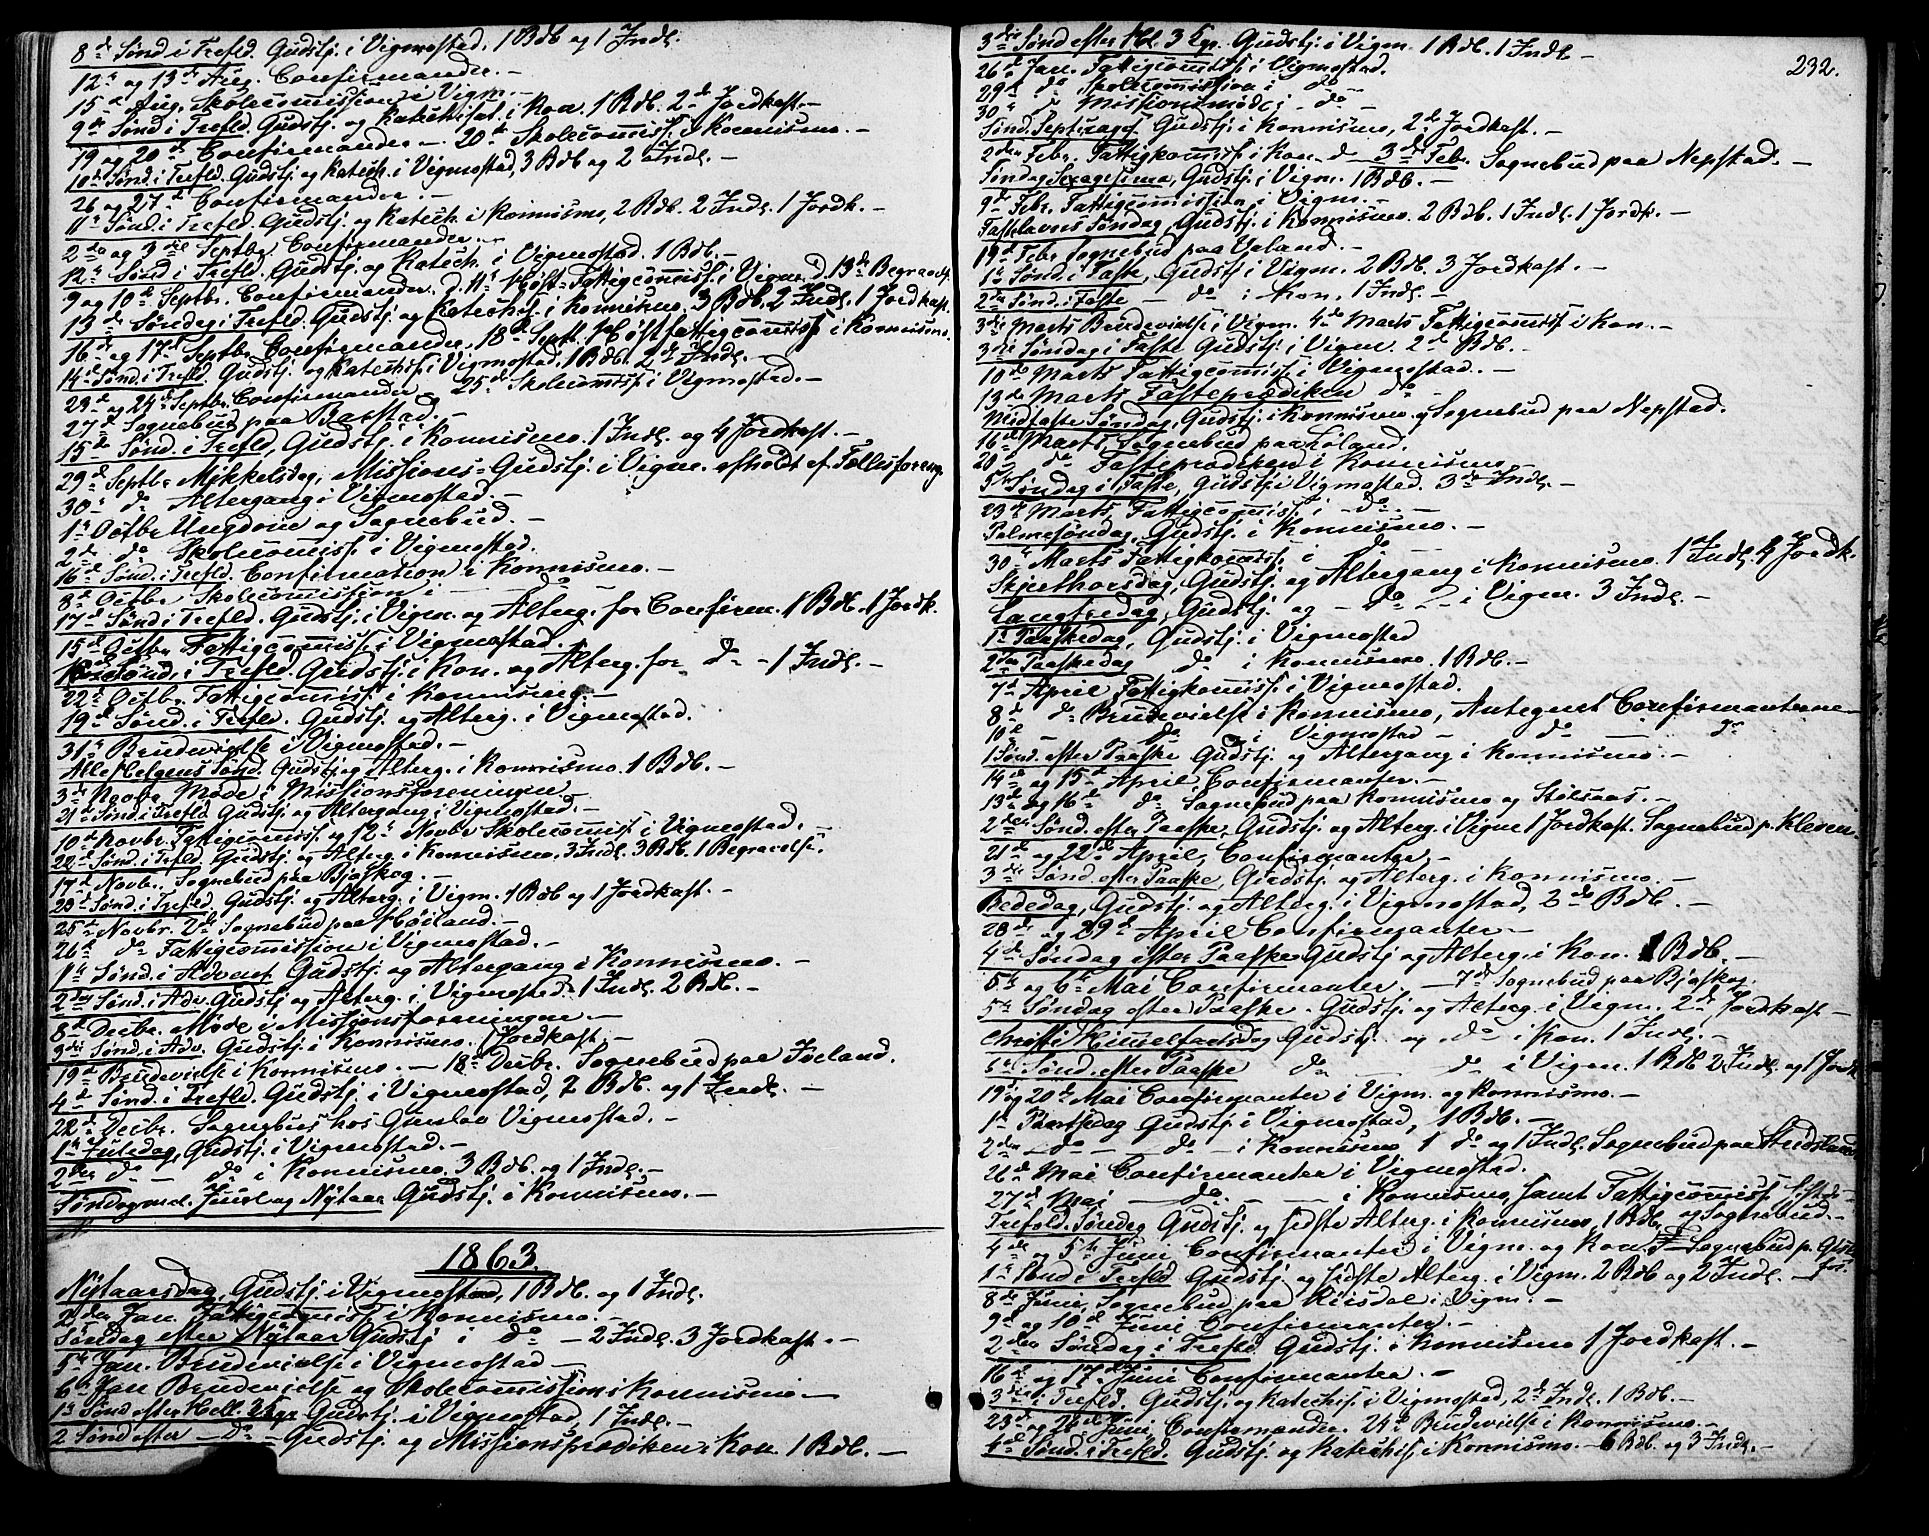 8de Sønd i Trefld. Gudstj. i Vigmostad. 1 Bdb og 1 Indl.
12te og 13de Aug. Confirmander. –
15de Aug. Skolecomission i Vigm. –
9de Sønd i Trefld. Gudstj. og Katechisat. i Kon. 1 Bdb. 2de Jordkast. –
19 og 20de Confirmander – 20de Skolecomiss. i Konnismo. –
10de Sønd. i Trefld. Gudstj. og Katech. i Vigmostad, 3 Bdb og 2 Indl. –
26 og 27de Confirmander. –
11te Sønd. i Trefld. Gudstj. og Katech. i Konnismo, 2 Bdb. 2 Indl. 1 Jordk. –
2den og 3die Septbr. Confirmander. –
12te Sønd i Trefld. Gudstj og Katech. i Vigmostad. 1 Bdb. –
9 og 10de Septbr. Confirmander. d. 11te Høst-Fattigcomiss. i Vigm. d. 13de Begravels.
13de Søndag i Trefld. Gudstj. og Katechis. i Konnismo. 3 Bdb. 2 Indl. 1 Jordkast.
16de og 17de Septbr. Confirmander. 18de Septb. Høstfattigcomiss i Konnismo.
14de Sønd. i Trefld. Gudstj. og Katechis. i Vigmostad. 1 Bdb. 2de Indl. –
23de og 24de Septbr. Confirmander 25de Skolecomiss. i Vigmostad. –
27de Sognebud paa Barstad. –
15de Sønd. i Trefld, Gudstj. i Konnismo. 1 Indl. og 4 Jordkast. –
29de Septbr. Mykkelsdag, Missions-Gudstj. i Vigm. afholdt af Fællesforeng.
30te do Altergang i Vigmostad. –
1te Octbr. Ungdom og Sognebud. –
2de do Skolecomiss. i Vigmostad.
16de Sønd. i Trefld. Confirmation i Konnismo. –
8de Octbr. Skolecomission i – do –
17de Sønd i Trefld. Gudstj. i Vigm. og Alterg. for Confirm. 1 Bdb. 1 Jordk.
15de Octbr. Fattigcomiss. i Vigmostad. –
18de Sønd. i Trefld. Gudstj. i Kon. og Alterg. for do – 1 Indl. –
22de Octbr. Fattigcomiss i Konnismo. –
19de Sønd. i Trefld. Gudstj. og Alterg. i Vigmostad.
31te Brudevielse i Vigmostad. –
Alle Helgens Sønd. Gudstj og Alterg. i Konnismo. 1 Bdb. –
3de Novbr. Møde i Missionsforeningen
21de Sønd. i Trefld Gudstj. og Altergang i Vigmostad. –
10de Novbr. Fattigcomiss. og 12te Novbr Skolecomiss. i Vigmostad. –
22de Sønd. i Trefld. Gudstj. og Alterg. i Konnismo. 3 Indl. 3 Bdb. 1 Begravelse.
17de Novbr. Sognebud paa Bjaskog. –
23de Sønd. i Trefld. Gudstj. og Alterg. i Vigm. 1 Bdb og 1 Jordkast. –
25de Novbr. 2de Sognebud paa Høiland. –
26de do Fattigcomission i Vigmostad. –
1te Sønd. i Advent Gudstj. og Altergang i Konnismo. –
2den Sønd. i Adv. Gudstj. og Alterg. i Vigmostad. 1 Indl. 2 Bdb. –
8de Decbr. Møde i Missionsforeningen –
3die Sønd. i Adv. Gudstj. i Konnismo. 1 Jordkast. –
19de Brudevielse i Konnismo. – 18de Decbr. Sognebud paa Ioeland.
4de Sønd. i Trefld. Gudstj. i Vigmostad, 2 Bdb. og 1 Indl. –
22de Decbr. Sognebus hos Gunlov Vigmostad. –
1te Juledag, Gudstj. i Vigmostad. –
2den do – do i Konnismo. 3 Bdb. og 1 Indl. –
Søndag ml. Juul og Nytaar Gudstj. i Konnismo. –
1863.
Nytaarsdag, Gudstj. i Vigmostad, 1 Bdb. og 1 Indl.
2den Jan. Fattigcomiss i Konnismo.
Søndag efter Nytaar Gudstj i do – 2 Indl. 3 Jordkast. –
5te Jan. Brudevielse i Vigmostad –
6te Jan Brudevielse og Skolecomission i Konnismo –
1te Sønd efter Hell. 3 Kgr Gudstj. i Vigmostad, 1 Indl. –
2 Sønd efter – do – Gudstj. og Missionsprædiken i Kon. 1 Bdb. –
232.
3die Sønd efter Hel. 3 Kgr. Gudstj. i Vigm. 1 Bdb. 1 Indl. –
26de Jan. Fattigcomiss. i Vigmostad.
29de do Skolecomission i do
30te do Missionsmøde i – do –
Sønd. Septuages. Gudstj. i Konnismo, 2de Jordkast. –
2den Febr. Fattigkomiss. i Kon. d. 3de Febr. Sognebud paa Nepstad. –
Søndag Sexagesima, Gudstj. i Vigm. 1 Bdb. –
9de Febr. Fattigcomission i Vigm. –
Fastelavns Søndag, Gudstj. i Konnismo. 2 Bdb. 1 Indl. 1 Jordk. –
19de Febr. Sognebud paa Ueland. –
1te Sønd. i Faste, Gudstj. i Vigm. 2 Bdb. 3 Jordkast. –
2den Sønd. i Faste – do i Kon. 1 Indl. –
3die Marts Brudevielse i Vigm. 4de Marts Fattigcomiss i Kon. –
3die Søndag i Faste Gudstj. i Vigm. 2de Bdb. –
10de Marts Fattigcomiss. i Vigmostad. –
13de Marts Fasteprædiken do –
Midfaste Søndag, Gudstj. i Konnismo. og Sognebud paa Nepstad.
16de Marts, Sognebud paa Løland.
20de do Fasteprædiken i Konnismo
5te Søndag i Faste, Gudstj. i Vigmostad. 3de Indl. –
23de Marts, Fattigcomiss. i – do –
Palmesøndag, Gudstj. i Konnismo. –
30te Marts Fattigkomiss. i do
Skjærthorsdag, Gudstj. og Altergang i Konnismo. 1 Indl. 4 Jordk.
Langfredag, Gudstj. og – do – i Vigm. 3 Indl. –
1te Paaskedag, Gudstj. i Vigmostad
2den Paaskedag do i Konnismo. 1 Bdb. –
7de April Fattigkomiss. i Vigmostad.
8de do Brudevielse i Konnismo, Antegnet Confirmanterne –
10de – do i Vigmostad – do – do
1 Sønd. efter Paaske Gudstj. og Altergang i Konnismo. –
14de og 15de April, Confirmanter. –
13de og 16de do Sognebud paa Konnismo og Stølsaas. –
2den Sønd. efter Paaske, Gudstj. og Alterg. i Vigm 1 Jordkast. Sognebud p. Kleven.
21de og 22de April, Confirmanter. –
3die Sønd. efter Paaske, Gudstj. og Alterg. i Konnismo. –
Bededag, Gudstj. og Alterg. i Vigmostad, 2de Bdb. –
28de og 29de April Confirmanter –
4de Søndag efter Paaske Gudstj. og Alterg. i Kon. 1 Bdb. –
5te og 6te Mai Confirmanter. – 7de Sognebud paa Bjaskog.
5te Søndag efter Paaske. Gudstj. og Alterg. i Vigm. 2de Jordkast –
Christi Himmelfartsdag Gudstj. og do i Kon. 1 Indl. –
6te Sønd. efter Paaske do – do i Vigm. 1 Bdb 2 Indl. og 1 Jordk
19 og 20de Mai Confirmanter i Vigm. og Konnismo. –
1te Pintsedag Gudstj. i Vigmostad, 1 Bdb. –
2den – do – do – i Konnismo 1 do og 1 Indl. Sognebud paa Studsland
26de Mai Confirmanter i Vigmostad.
27de Mai – do – i Konnismo, samt Fattigcomiss. sidste –
Trefold. Søndag Gudstj. og sidste Alterg. i Konnismo, 1 Bdb. og Sognebud. –
4de og 5te Juni Confirmanter i Vigm. og Kon. Sognebud p.
1te Sønd i Trefld Gudstj. og sidste Alterg. i Vigm. 2 Bdb og 2 Indl. –
8de Juni, Sognebud paa Risdal i Vigm. –
9de og 10de Juni Confirmanter. –
2den Søndag i Trefld. Gudstj. i Konnismo 1 Jordkast. –
16de og 17de Juni Confirmanter. –
3die S. i Trefld. Gudstj. og Katechis. i Vigmostad, 2de Indl. 1 Bdb. –
23de og 26de Juni, Confirmander. 24de Brudevielse i Konnismo. –
4de Sønd. i Trefld. Gudstj. og Katechis. i Konnismo. – 6 Bdb. og 3 Indl. –